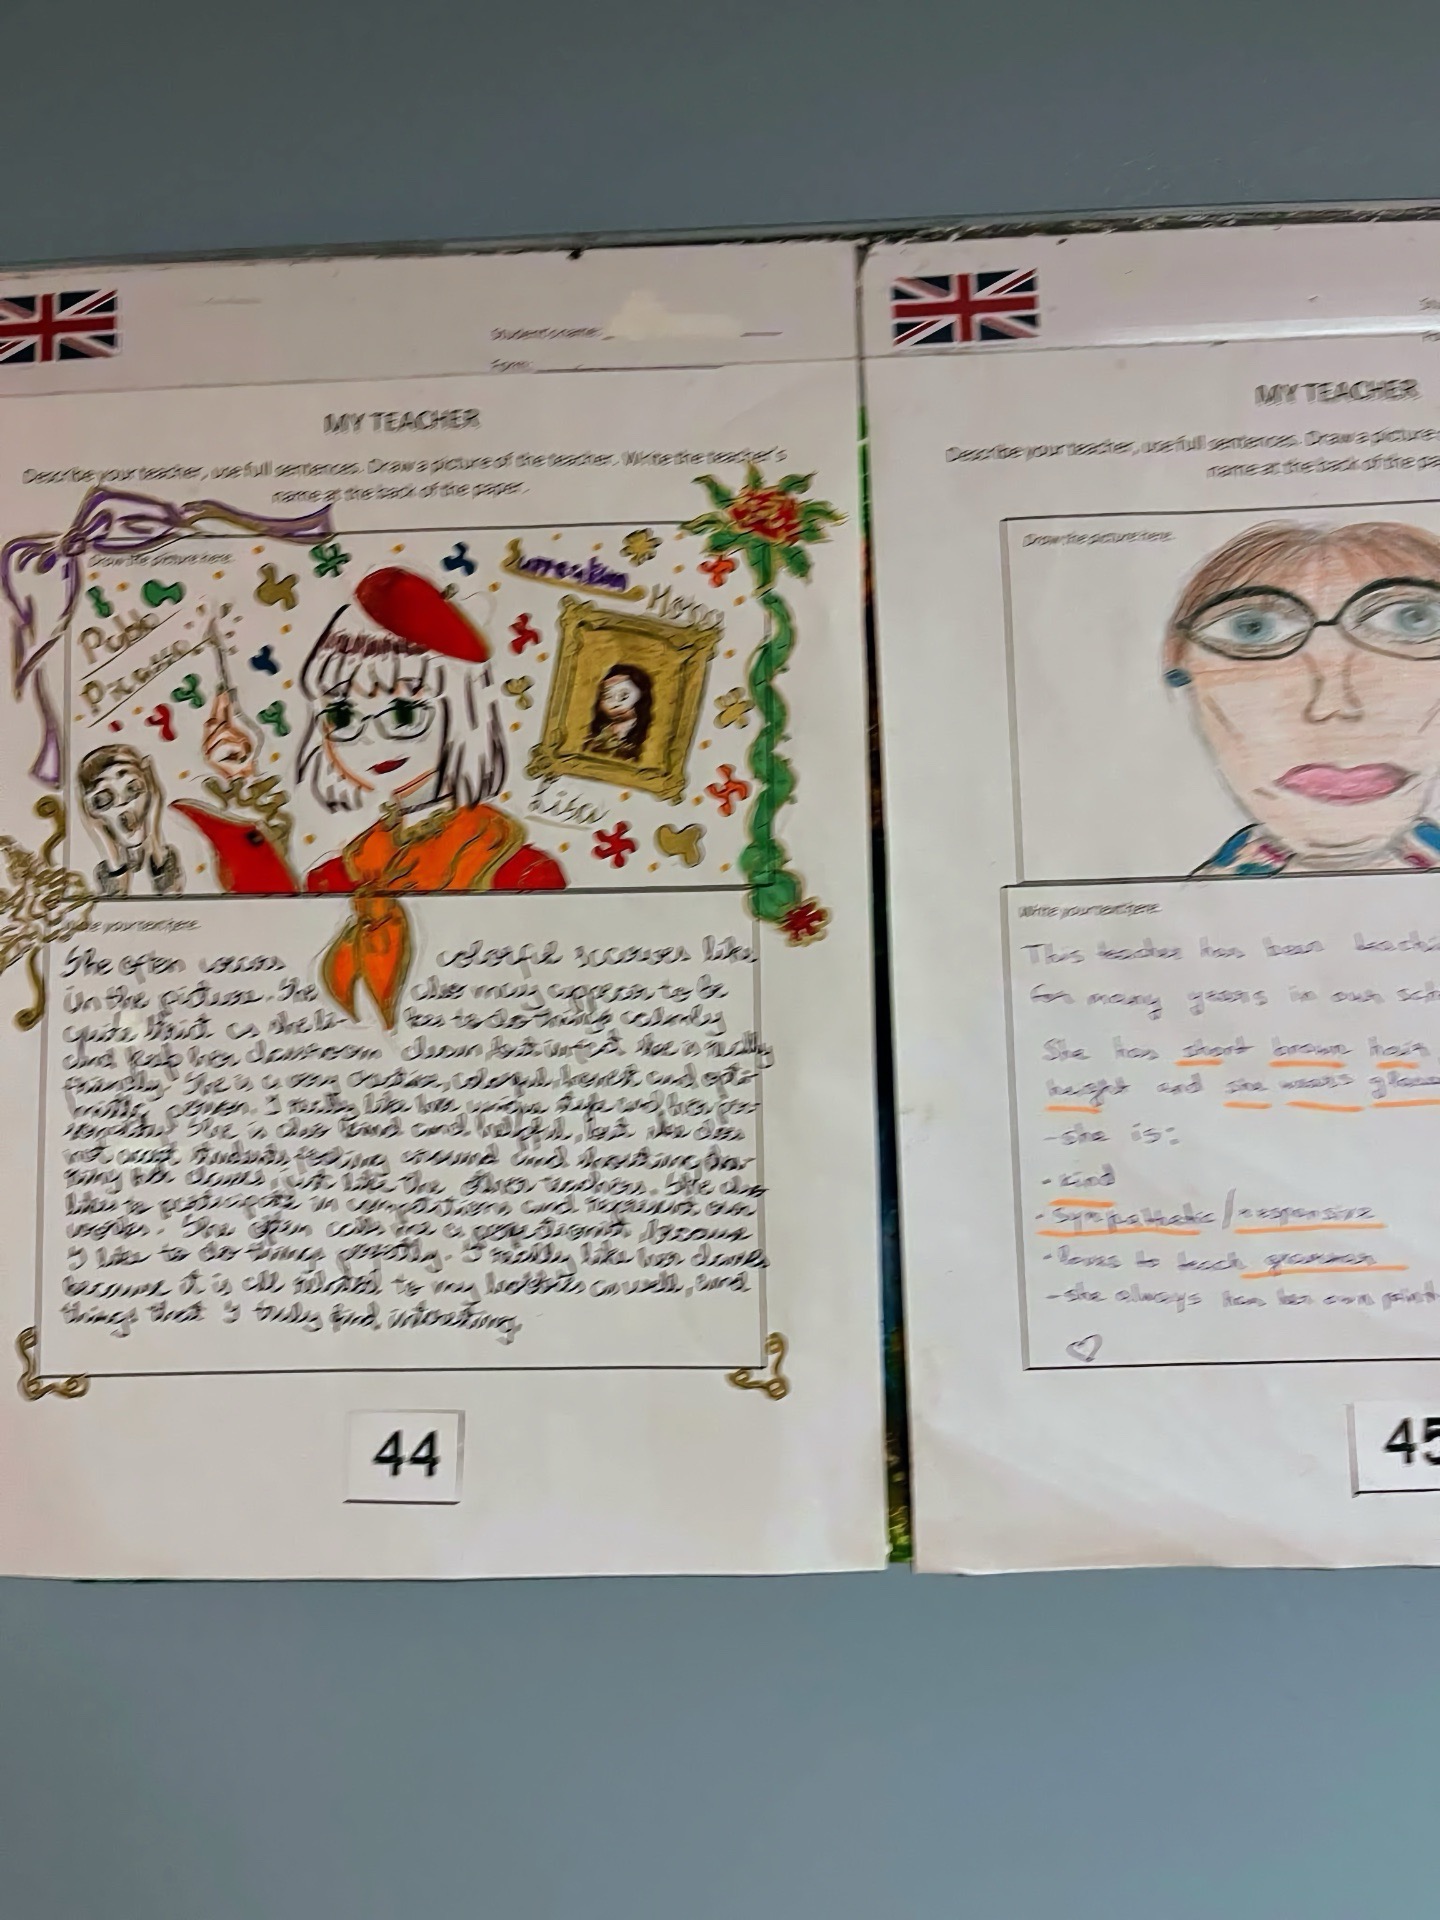 Student's name:
Form:
MY TEACHER
Describe your teacher, use full sentences. Draw a picture of the teacher. Write the teacher's
name at the back of the paper.
Draw the picture here.
Pablo
Picasso
Surrealism
Mona
Lisa
Write your text here.
She often wears colorful scarves like
in the picture. She also may appear to be
quite strict as she li- kes to do things calmly
and keep her classroom clean but in fact she is really
friendly. She is a very creative, colorful, honest and opti-
mistic person. I really like her unique style and her per-
sonality. She is also kind and helpful, but she does
not accept students fooling around and shouting du-
ring her classes, just like the other teachers. She also
likes to participate in competitions and represent our
works. She often calls me a perfectionist because
I like to do things greatly. I really like her classes
because it is all related to my hobbies as well, and
things that I truly find interesting.
44
MY TEACHER
Describe your teacher, use full sentences. Draw a picture
name at the back of the
Draw the picture here.
Write your text here.
This teacher has been
for many years in our
She has short brown hair,
height and she wears
- she is:
- kind
- sympathetic / responsive
- loves to teach grammar
- she always has her own
45